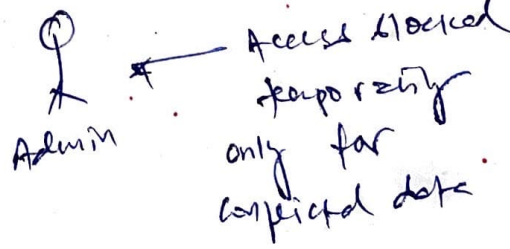 Access blocked
temporarily
Admin
only for
conflicted data